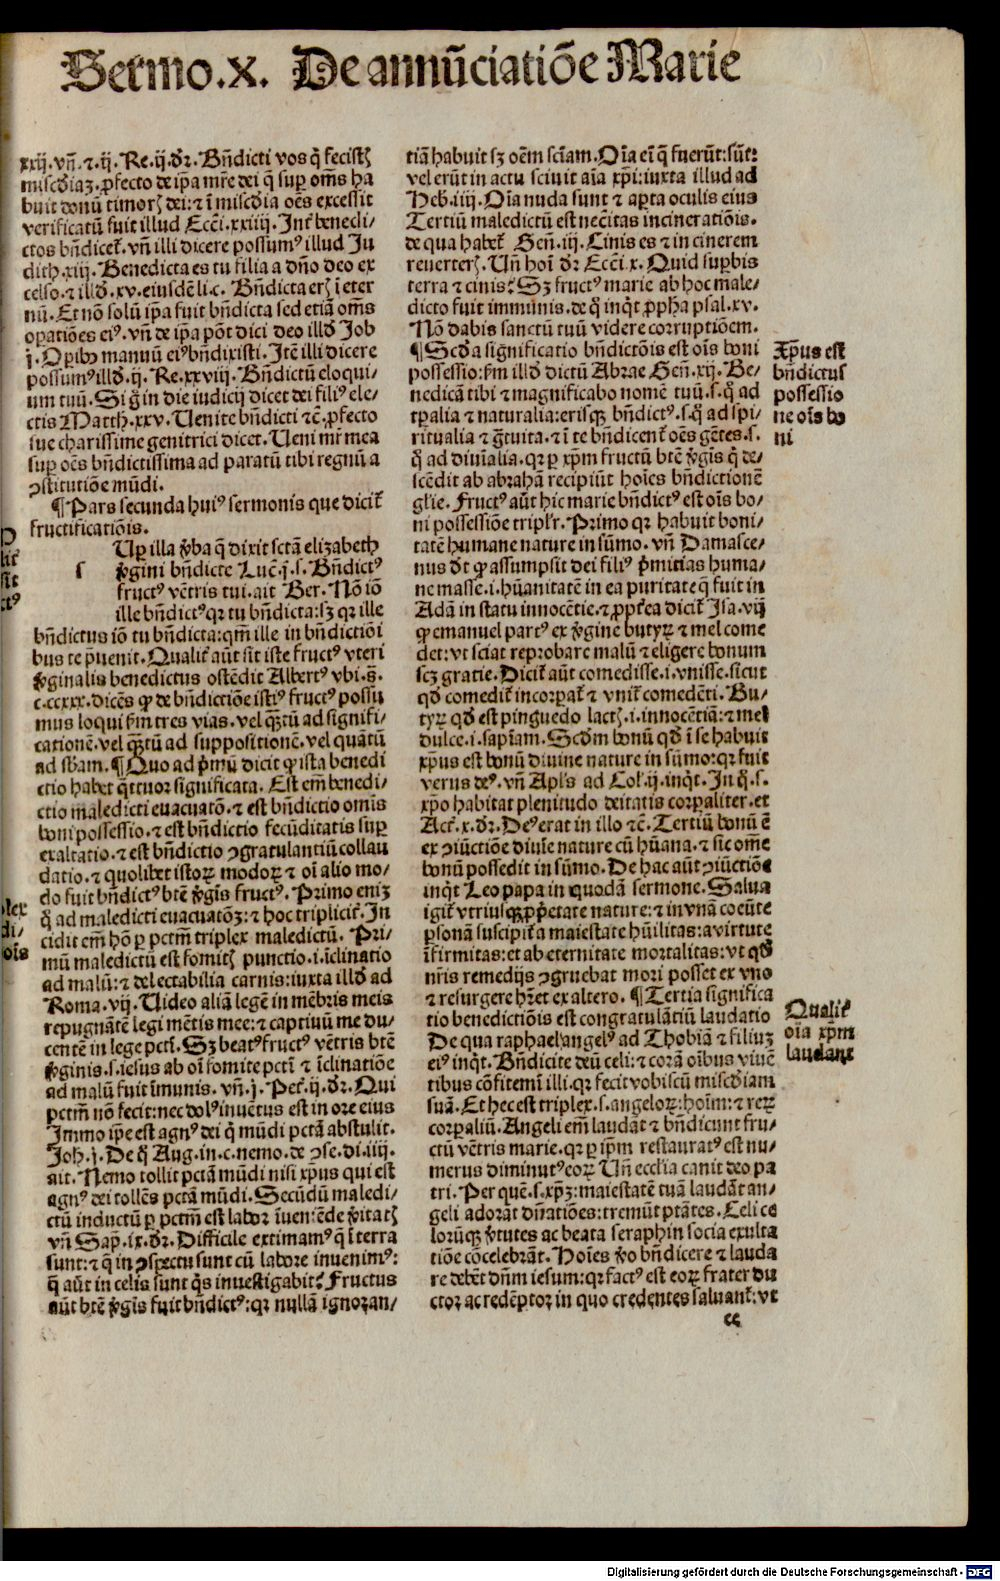 Sermo.x. De annūciatiōe Marie
xxij.vn̄.⁊.ij. Re.ij.dr̄. Bn̄dicti vos q̄ fecistꝫ
miscḋiaꝫ. ꝓfecto de ip̄a mr̄e dei q̄ suꝑ om̄s ha
buit donū timorꝫ dei:⁊ ī miscḋia oēs excessit
verificatū fuit illud Ecci.xxiiij. Int̄ benedi⸗
ctos bn̄dicet̄. vn̄ illi dicere possumꝰ illud Ju
dith.xiij. Benedicta es tu filia a dn̄o deo ex
celso.⁊ illḋ.xv.eiusdē li.c. Bn̄dicta erꝫ ī eter
nū. Et nō solū ip̄a fuit bn̄dicta sed etiā om̄s
oꝑatiōes eiꝰ. vn̄ de ip̄a pōt dici deo illḋ Job
j. Oꝑibꝰ manuū eiꝰ bn̄dixisti. Itē illi dicere
possumꝰ illḋ.ij. Re.xxviij. Bn̄dictū eloqui⸗
um tuū. Si g̊ in die iudicij dicet dei filiꝰ ele⸗
ctis Matth.xxv. Uenite bn̄dicti ⁊c̄. ꝓfecto
sue charissime genitrici dicet. Ueni mr̄ mea
suꝑ oēs bn̄dictissima ad paratū tibi regnū a
ꝯstitutiōe mūdi.
¶ Pars secunda huiꝰ sermonis que dicit̄
fructificatiōis.
s Uꝑ illa v̄ba q̄ dixit sctā elizabeth
v̄gini bn̄dicte Luc̄.j.s. Bn̄dictꝰ
fructꝰ vētris tui. ait Ber. Nō iō
ille bn̄dictꝰ qꝛ tu bn̄dicta: sꝫ qꝛ ille
bn̄dictus iō tu bn̄dicta: qm̄ ille in bn̄dictiōi
bus te p̄uenit. Qualit̄ aūt sit iste fructꝰ vteri
v̄ginalis benedictus ostēdit Albertꝰ vbi.s̄.
c.ccxxx. dicēs ꝙ de bn̄dictiōe istiꝰ fructꝰ possu
mus loqui ẜm tres vias. vel qꝫtū ad signifi⸗
cationē. vel qꝫtū ad suppositionē. vel quātū
ad sb̄am. ¶ Quo ad p̄mū dicit ꝙ ista benedi
ctio habet q̄ttuor significata. Est em̄ benedi⸗
ctio maledicti euacuatō. ⁊ est bn̄dictio omīs
boni possessio. ⁊ est bn̄dictio fecūditatis suꝑ
exaltatio. ⁊ est bn̄dictio ꝯgratulantiū collau
datio. ⁊ quolibet istoꝝ modoꝝ ⁊ oī alio mo⸗
do fuit bn̄dictꝰ btē v̄gīs fructꝰ. Primo enīꝫ
q̊ ad maledicti euacuatōꝫ: ⁊ hoc triplicit̄. In
cidit em̄ hō ꝑ pctm̄ triplex maledictū. Pri⸗
mū maledictū est fomitꝫ punctio.i.īclinatio
ad malū: ⁊ delectabilia carnis: iuxta illḋ ad
Roma.vij. Uideo aliā legē in mēbris meis
repugnātē legi mētis mee: ⁊ captiuū me du⸗
centē in lege pcti. Sꝫ beatꝰ fructꝰ vētris btē
v̄ginis.s.iesus ab oī fomite pcti ⁊ īclinatiōe
ad malū fuit īmunis. vn̄.j. Pet̄.ij.dr̄. Qui
pctm̄ nō fecit: nec dolꝰ inuētus est in ore eius
Immo ip̄e est agnꝰ dei q̄ mūdi pctā abstulit.
Joh.j. De q̊ Aug.in.c.nemo.de ꝯse.di.iiij.
ait. Nemo tollit pctā mūdi nisi xp̄us qui est
agnꝰ dei tollēs pctā mūdi. Secūdū maledi⸗
ctū inductū ꝑ pctm̄ est labor īueniēde v̄itatꝫ
vn̄ Sap̄.ix.dr̄. Difficile extimamꝰ q̄ ī terra
sunt: ⁊ q̄ in ꝯspectu sunt cū labore inuenimꝰ:
q̄ aūt in celis sunt q̄s inuestigabit? Fructus
aūt btē v̄gīs fuit bn̄dictꝰ: qꝛ nullā ignoran⸗
tiā habuit sꝫ oēm sciam. Oīa ei q̄ fuerūt: sūt:
vel erūt in actu sciuit aīa xp̄i: iuxta illud ad
Heb.iiij. Oīa nuda sunt ⁊ aꝑta oculis eius
Tertiū maledictū est necītas incineratiōis.
de qua habet̄ Gen̄.iij. Cinis es ⁊ in cinerem
reuerterꝫ. Un̄ hoī dr̄ Ecci.x. Quid suꝑbis
terra ⁊ cinis? Sꝫ fructꝰ marie ab hoc male⸗
dicto fuit immunis. de q̊ inq̄t ꝓpha psal.xv.
Nō dabis sanctū tuū videre corruptiōem.
¶ Scḋa significatio bn̄dictōis est oīs boni
possessio: ẜm illḋ dictū Abrae Gen̄.xij. Be⸗
nedicā tibi ⁊ magnificabo nomē tuū.s.q̊ ad
tꝑalia ⁊ naturalia: erisqꝫ bn̄dictꝰ.s.q̊ ad spi⸗
ritualia ⁊ g̊tuita. ⁊ ī te bn̄dicent̄ oēs gētes.s.
q̊ ad diuīalia. qꝛ ꝑ xp̄m fructū btē v̄gīs q̄ de⸗
scēdit ab abrahā recipiūt hoīes bn̄dictionē
glīe. Fructꝰ aūt hic marie bn̄dictꝰ est oīs bo⸗
ni possessiōe triplr̄. Primo qꝛ habuit boni⸗
tatē humane nature in sūmo. vn̄ Damasce⸗
nus dt̄ ꝙ assumpsit dei filiꝰ p̄mitias huma⸗
ne masse.i.hūanitatē in ea puritate q̄ fuit in
Adā in statu innocētie. ⁊ ꝓpt̄ea dicit̄ Isa.vij
ꝙ emanuel partꝰ ex v̄gine butyꝝ ⁊ mel come
det: vt sciat reprobare malū ⁊ eligere bonum
scꝫ gratie. Dicit̄ aūt comedisse.i.vnisse. sicut
qḋ comedit̄ incorꝑat̄ ⁊ vnit̄ comedēti. Bu⸗
tyꝝ qḋ est pinguedo lactꝫ.i.innocētiā: ⁊ mel
dulce.i.sapīam. Scḋm bonū qḋ ī se habuit
xp̄us est bonū diuine nature in sūmo: qꝛ fuit
verus deꝰ. vn̄ Apl̄s ad Col̄.ij.inq̄t. In q̊.s.
xp̄o habitat plenitudo deitatis corꝑaliter. et
Act̄.x.dr̄. Deꝰ erat in illo ⁊c̄. Tertiū bonū ē
ex ꝯiūctiōe diuīe nature cū hūana. ⁊ sic om̄e
bonū possedit in sūmo. De hac aūt ꝯiūctiōe
inq̄t Leo papa in quodā sermone. Salua
igit̄ vtriusqꝫ ꝓp̄etate nature: ⁊ in vnā coeūte
ꝑsonā suscipit̄ a maiestate hūilitas: a virtute
īfirmitas: et ab eternitate mortalitas: vt qḋ
nr̄is remedijs ꝯgruebat mori posset ex vno
⁊ resurgere hr̄et ex altero. ¶ Tertia significa
tio benedictiōis est congratulātiū laudatio
De qua raphael angelꝰ ad Thobiā ⁊ filiuꝫ
eiꝰ inq̄t. Bn̄dicite deū celi: ⁊ corā oībus viuē
tibus cōfitemī illi. qꝛ fecit vobiscū miscḋiam
suā. Et hec est triplex.s.angeloꝝ: hoīm: ⁊ reꝝ
corꝑaliū. Angeli em̄ laudāt ⁊ bn̄dicunt fru⸗
ctū vētris marie. qꝛ ꝑ ip̄m restauratꝰ est nu⸗
merus diminutꝰ eoꝝ Un̄ ecclia canit deo pa
tri. Per quē.s.xp̄ꝫ: maiestatē tuā laudāt an⸗
geli adorāt dn̄atiōes: tremūt ptātes. Celi ce
lorūqꝫ v̄tutes ac beata seraphin socia exulta
tiōe cōcelebrāt. Hoīes v̊o bn̄dicere ⁊ lauda
re debēt dn̄m iesum: qꝛ factꝰ est eoꝝ frater du
ctor ac redēptor in quo credentes saluant̄: vt
cc
Xp̄us est
bn̄dictus
possessio
ne oīs bo
ni
Qualit̄
oīa xp̄m
laudant